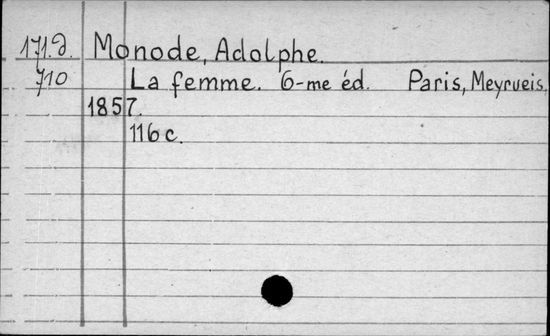 171.д. Monode, Adolphe.
710 La femme. 6-me éd. Paris, Meyrueis,
1857.
116 c.